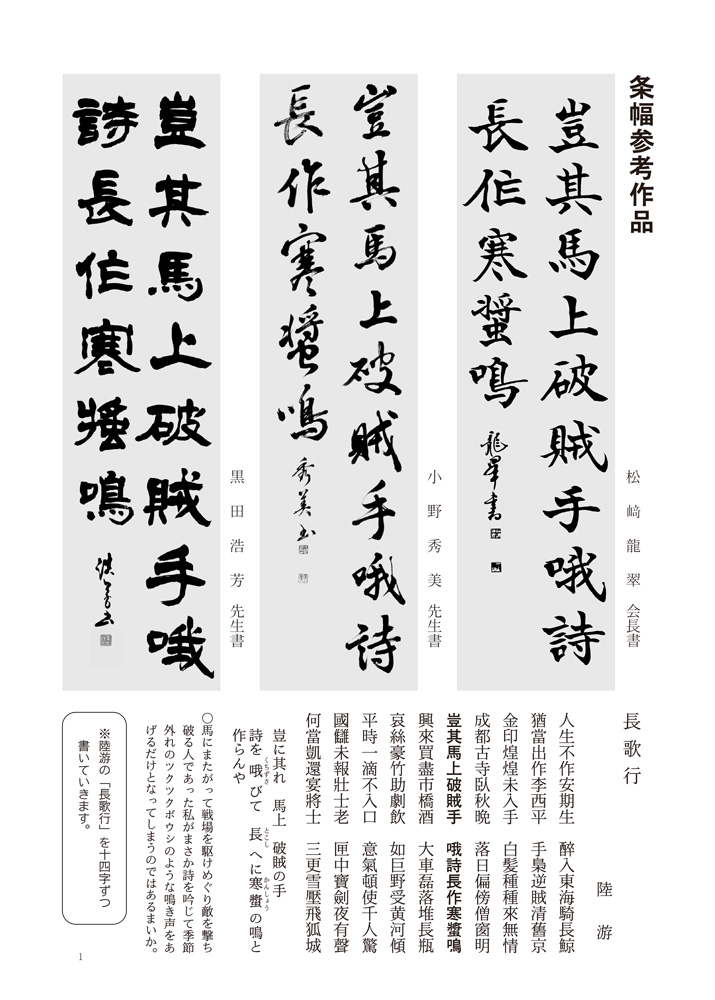 条幅参考作品
豈其馬上破賊手哦詩
長作寒螿鳴
龍翠書
松﨑龍翠 会長書
豈其馬上破賊手哦詩
長作寒螿鳴
秀美書
小野秀美 先生書
豈其馬上破賊手哦
詩長作寒螿鳴
浩芳書
黒田浩芳 先生書
長歌行
陸游
人生不作安期生 醉入東海騎長鯨
猶當出作李西平 手梟逆賊清舊京
金印煌煌未入手 白髪種種來無情
成都古寺臥秋晩 落日偏傍僧窗明
豈其馬上破賊手 哦詩長作寒螿鳴
興來買盡市橋酒 大車磊落堆長瓶
哀絲豪竹助劇飲 如巨野受黄河傾
平時一滴不入口 意氣頓使千人驚
國讎未報壯士老 匣中寶劍夜有聲
何當凱還宴將士 三更雪壓飛狐城
豈に其れ 馬上 破賊の手
詩を哦びて 長へに寒螿の鳴と
くちずさ とこし かんしょう
作らんや
〇馬にまたがって戦場を駆けめぐり敵を撃ち
破る人であった私がまさか詩を吟じて季節
外れのツクツクボウシのような鳴き声をあ
げるだけとなってしまうのではあるまいか。
※陸游の「長歌行」を十四字ずつ
書いていきます。
1